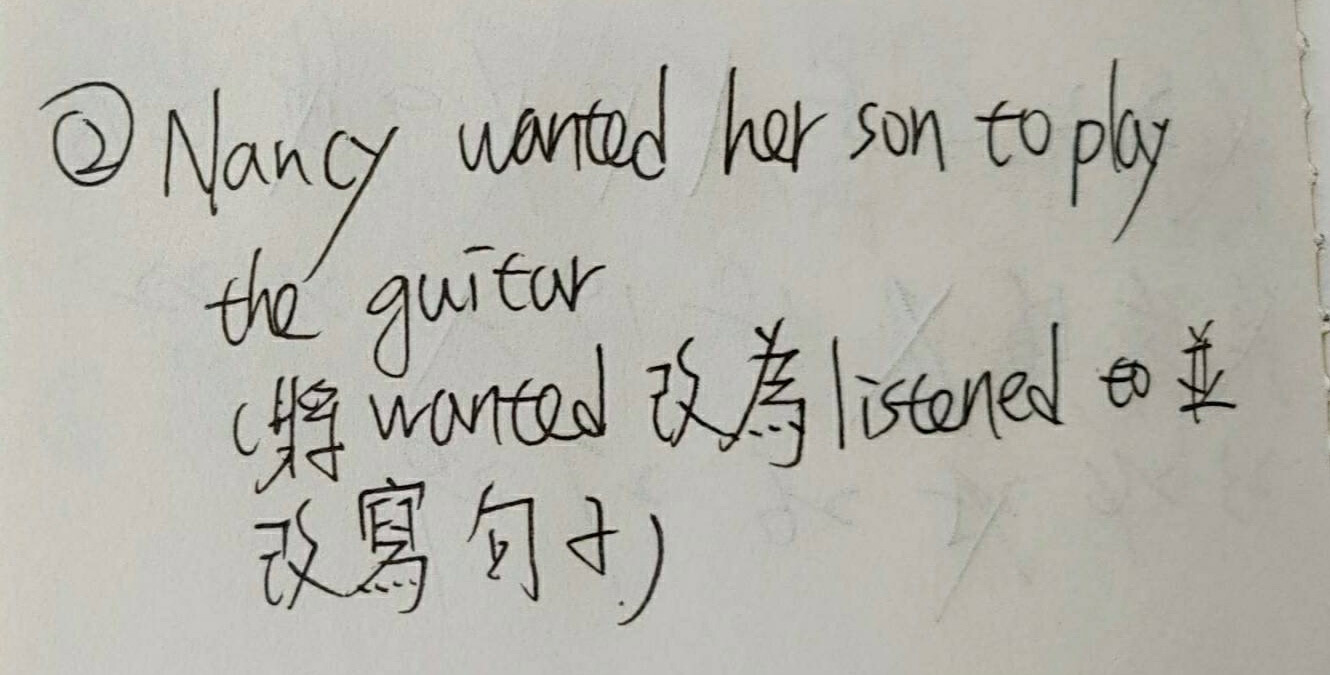 ② Nancy wanted her son to play
the guitar
(將 wanted 改為 listened to 並
改寫句子)